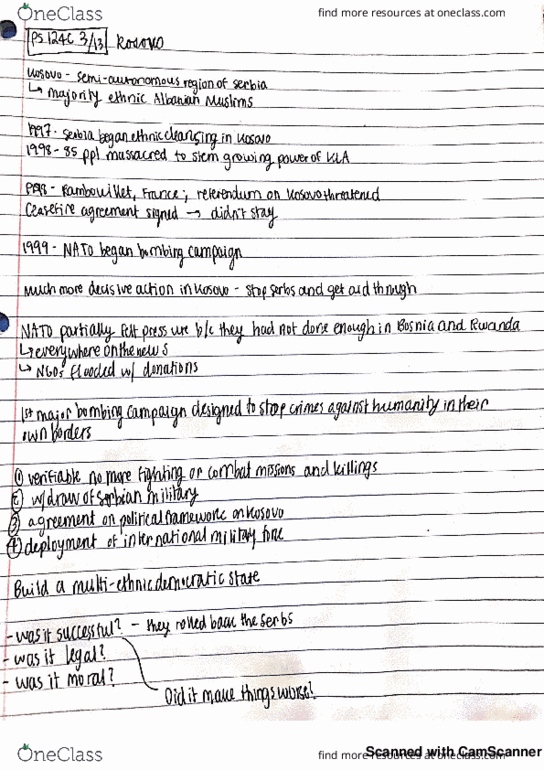 OneClass
find more resources at oneclass.com
PS 124C 3/13 Kosovo
Kosovo - semi-autonomous region of serbia
↳ majority ethnic Albanian Muslims
1997 - Serbia began ethnic cleansing in Kosovo
1998 - 85 ppl massacred to stem growing power of KLA
1998 - Rambouillet, France; referendum on Kosovo threatened
Ceasefire agreement signed → didn't stay
1999 - NATO began bombing campaign
Much more decisive action in Kosovo - stop serbs and get aid through
NATO partially felt pressure b/c they had not done enough in Bosnia and Rwanda
↳ everywhere on the news
↳ NGOs flooded w/ donations
1st major bombing campaign designed to stop crimes against humanity in their
own borders
① verifiable no more fighting or combat missions and killings
② w/draw of Serbian military
③ agreement on political framework on Kosovo
④ deployment of international military force
Build a multi-ethnic democratic state
- was it successful? - they rolled back the Serbs
- was it legal?
- was it moral?
Did it make things worse?
OneClass
find more resources at oneclass.com
Scanned with CamScanner